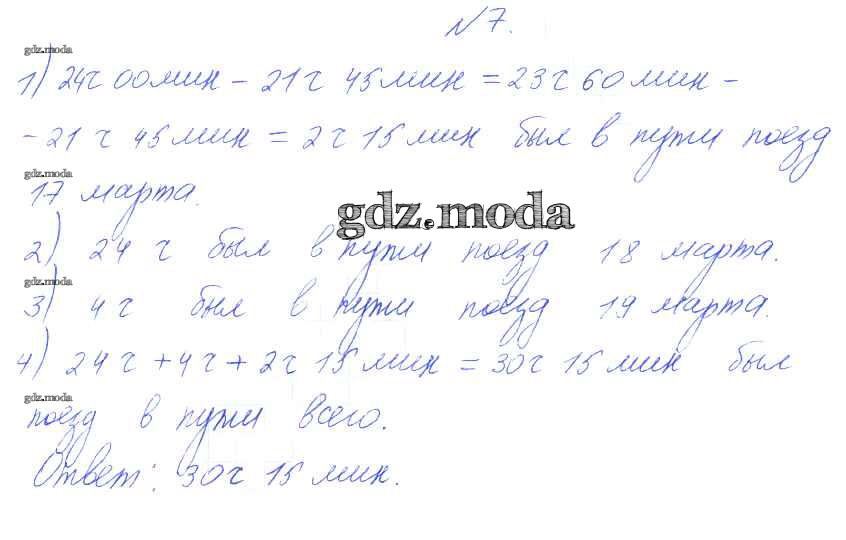 №7.
gdz.moda
1) 24ч 00мин - 21ч 45мин = 23ч 60мин -
- 21ч 45мин = 2ч 15мин был в пути поезд
gdz.moda
17 марта.
gdz.moda
2) 24 ч был в пути поезд 18 марта.
gdz.moda
3) 4ч был в пути поезд 19 марта.
4) 24ч + 4ч + 2ч 15мин = 30ч 15мин был
gdz.moda
поезд в пути всего.
Ответ: 30ч 15мин.